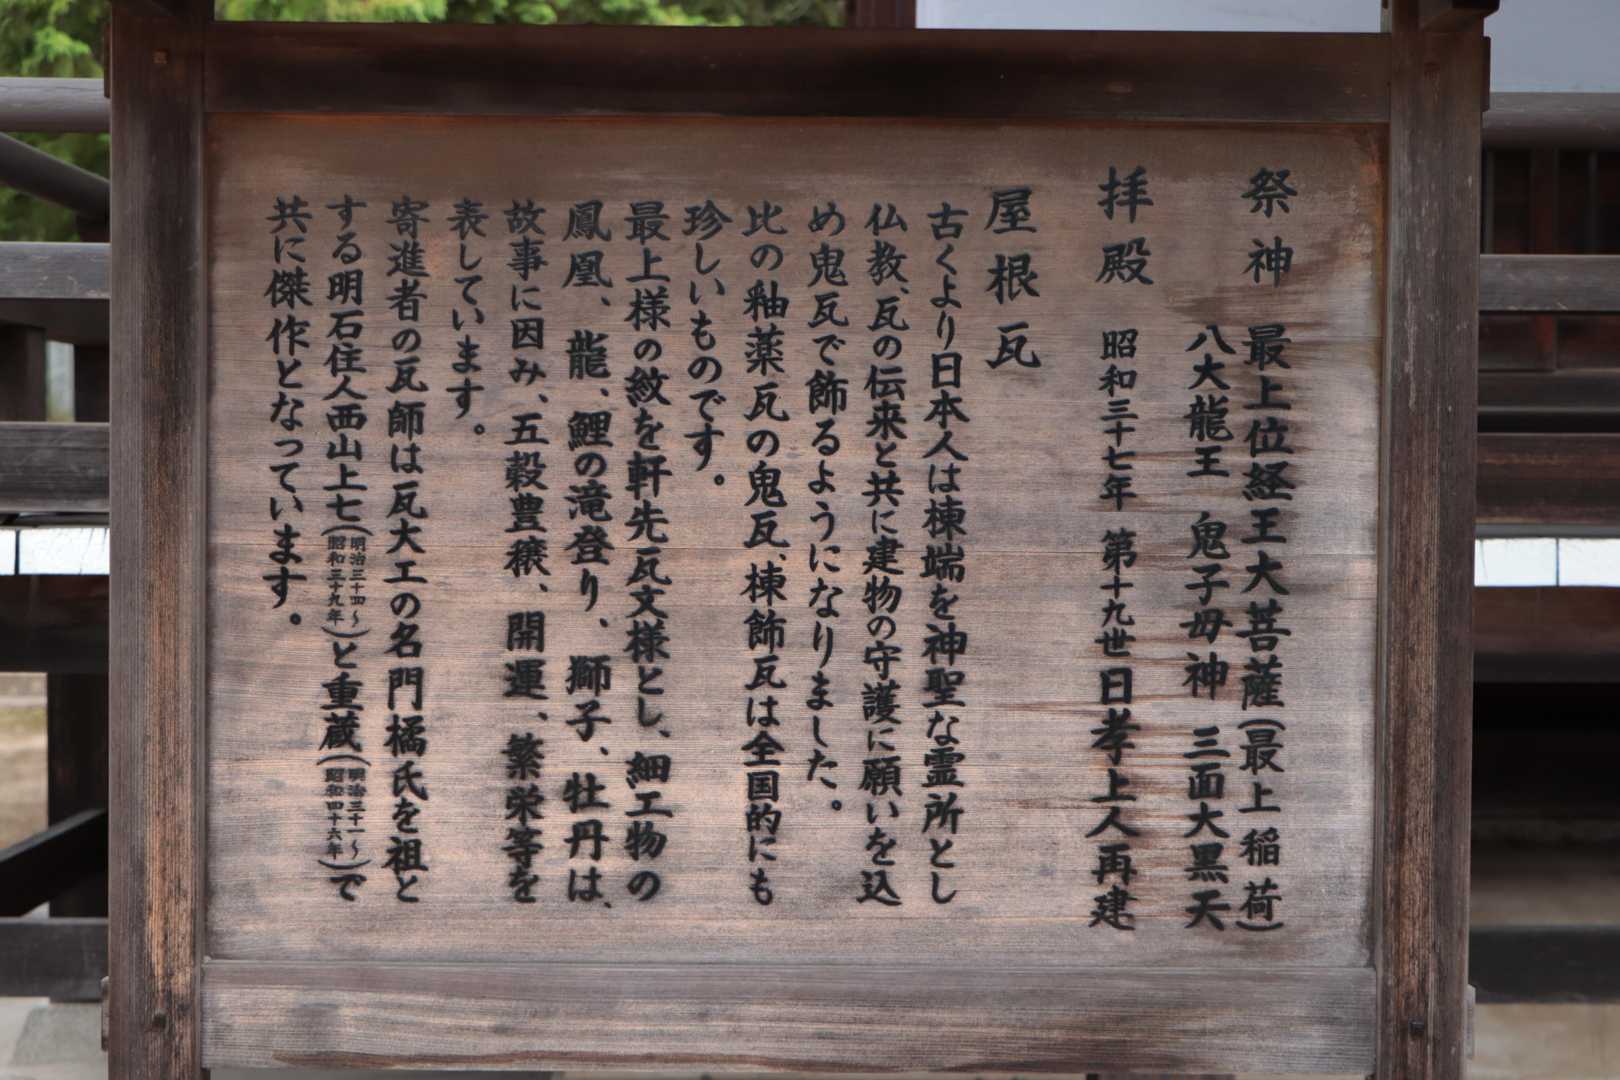 祭神 最上位経王大菩薩(最上稲荷)
八大龍王 鬼子母神 三面大黒天
拝殿 昭和三十七年 第十九世日孝上人再建
屋根瓦
古くより日本人は棟端を神聖な霊所とし
仏教、瓦の伝来と共に建物の守護に願いを込
め鬼瓦で飾るようになりました。
比の釉薬瓦の鬼瓦、棟飾瓦は全国的にも
珍しいものです。
最上様の紋を軒先瓦文様とし、細工物の
鳳凰、龍、鯉の滝登り、獅子、牡丹は、
故事に因み、五穀豊穣、開運、繁栄等を
表しています。
寄進者の瓦師は瓦大工の名門橘氏を祖と
する明石住人西山上七(明治三十四~昭和三十九年)と重蔵(明治三十一~昭和四十六年)で
共に傑作となっています。